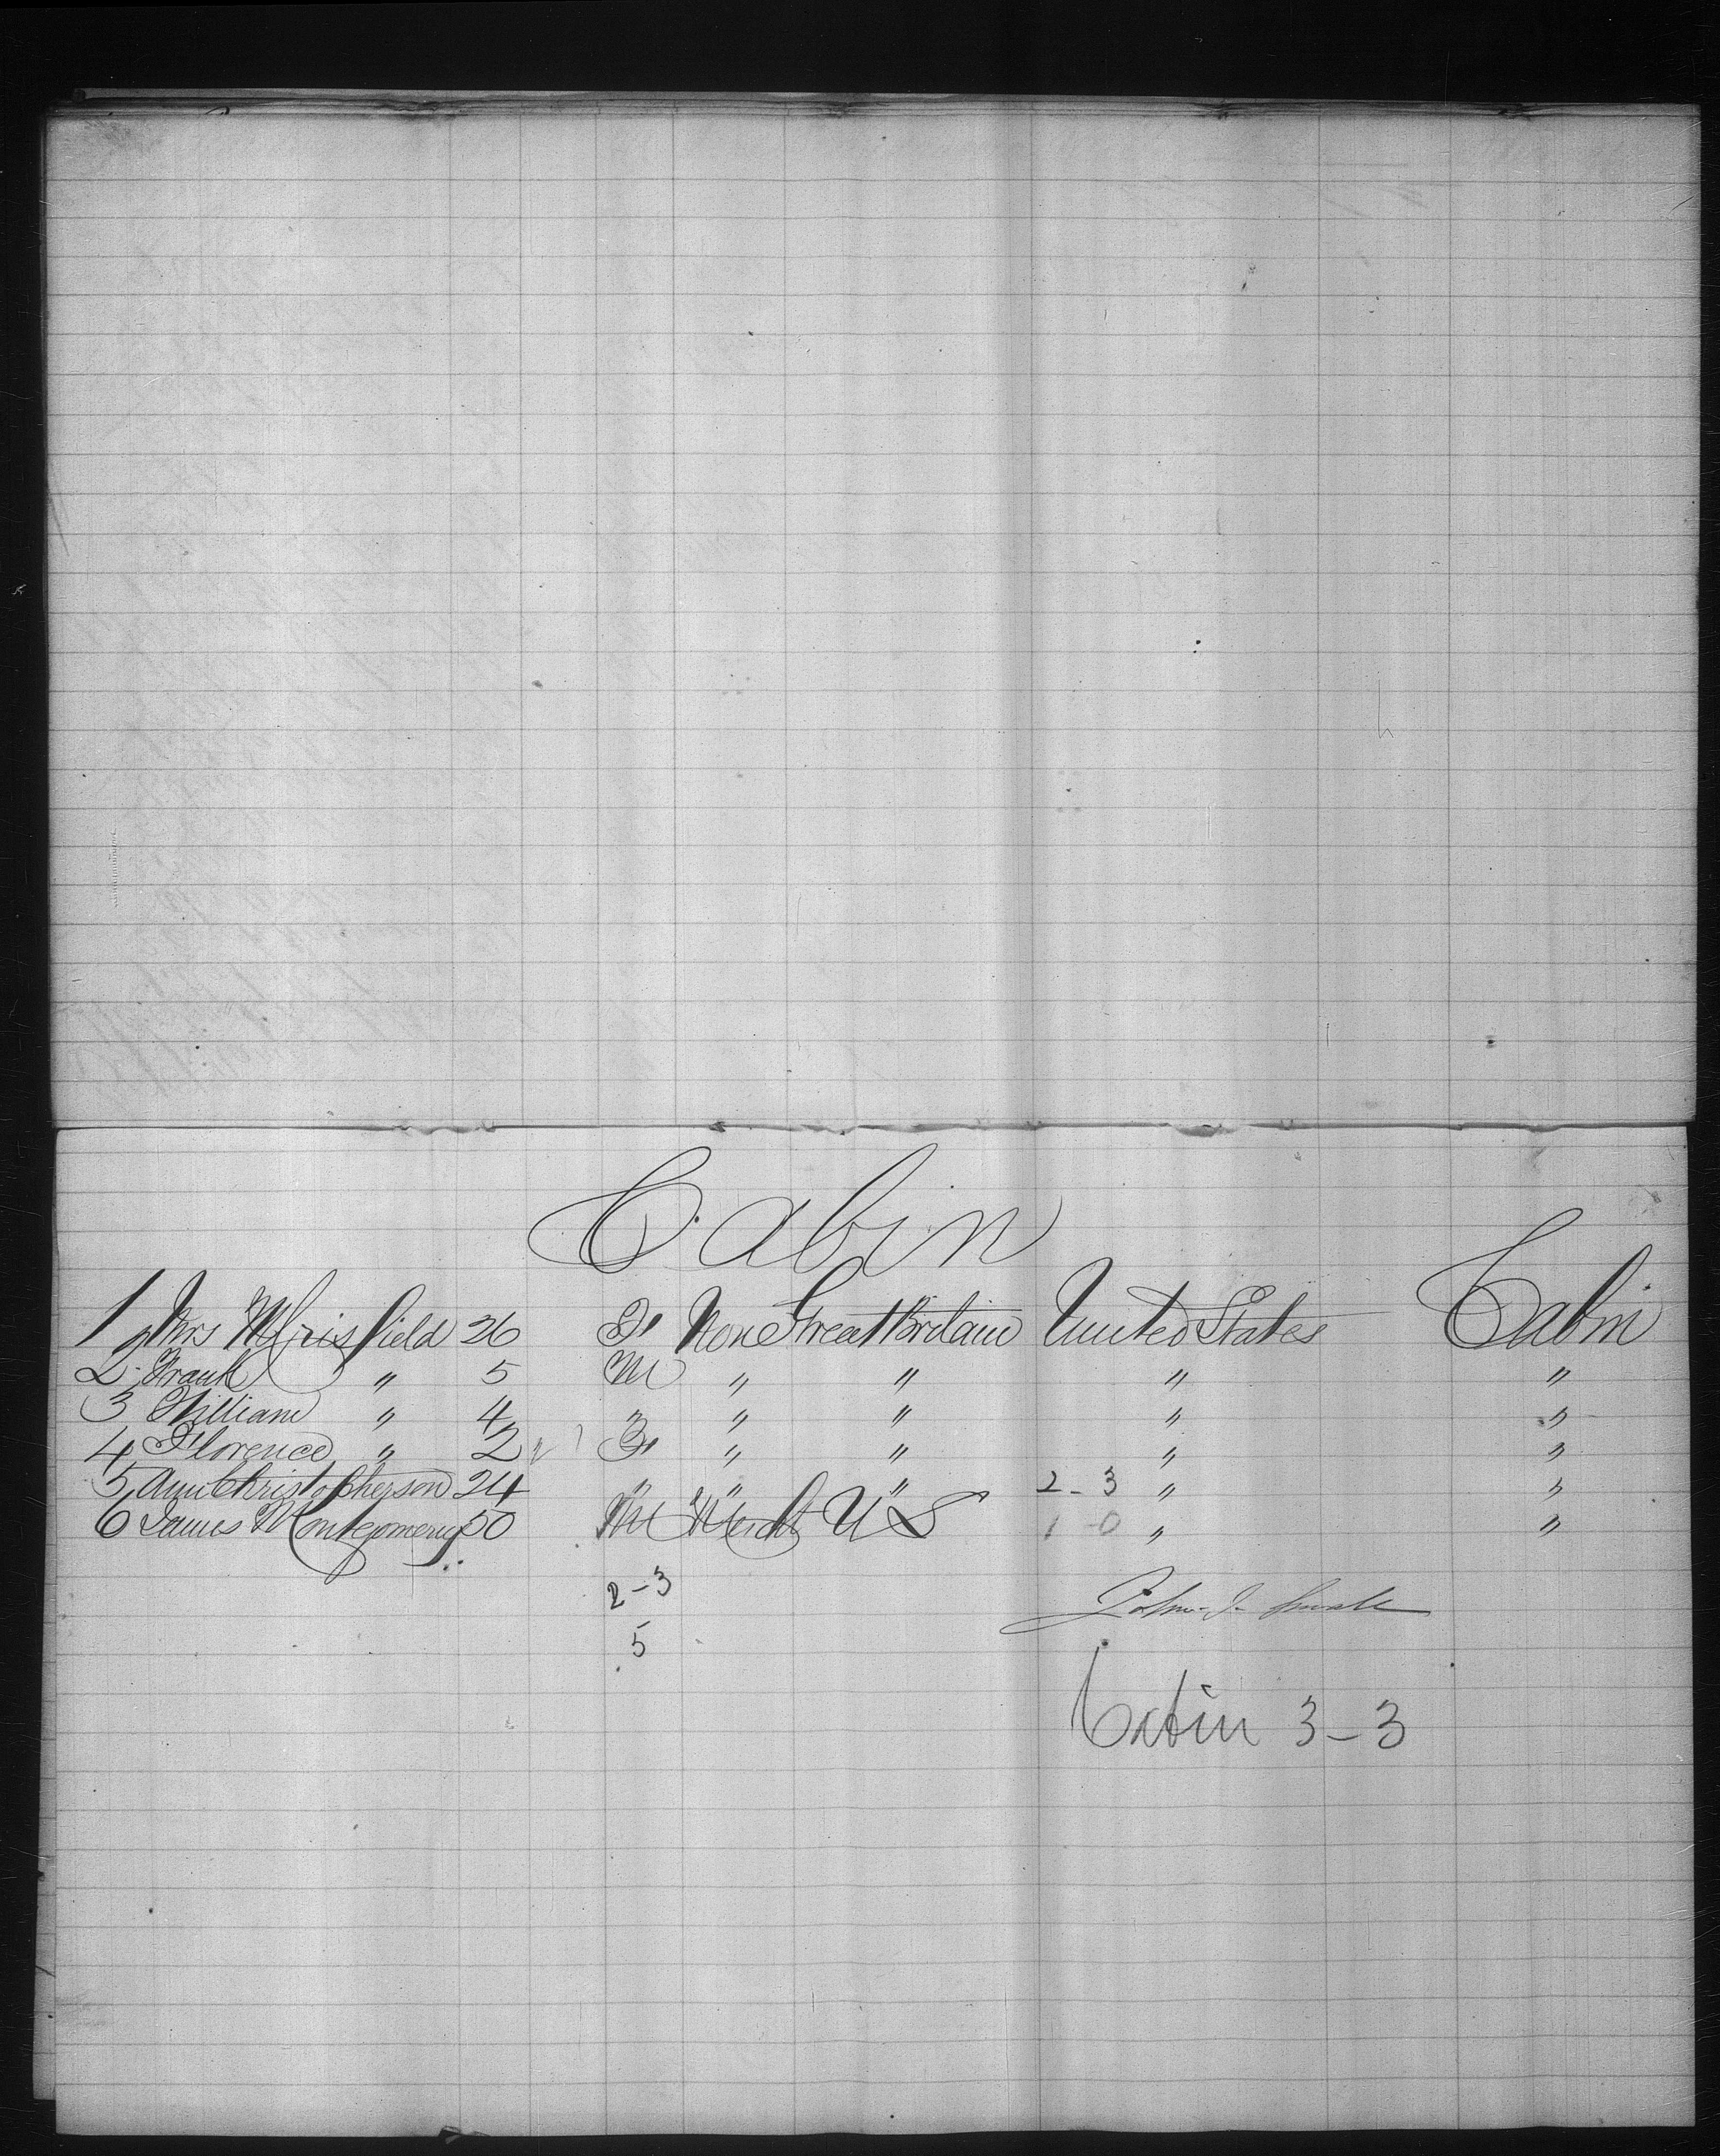 Cabin
1 Mrs Mirisfield 26 F None Great Britain United States Cabin
2 Frank " 5 M " " " "
3 William " 4 " " " " "
4 Florence " 2 F " " " "
5 Ann Christopherson 24 " " " 2-3 " "
6 James Montgomery 50 M Mercht U S 1-0 " "
2-3
5
John J. Small
Cabin 3-3